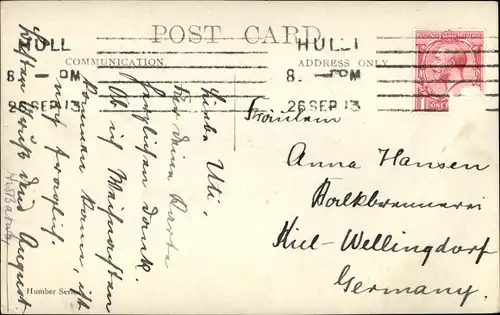 POST CARD
HULL
8. – PM
26 SEP 13
HULL
8. – PM
26 SEP 13
COMMUNICATION
ADDRESS ONLY
Liebe Uti,
Für deine Karte
herzlichen dank.
Ob ich Weihnachten
kommen kann, ist
noch fraglich.
Besten Gruß dein August
Fräulein
Anna Hansen
Kalkbrennerei
Kiel-Wellingdorf
Germany.
Humber Series